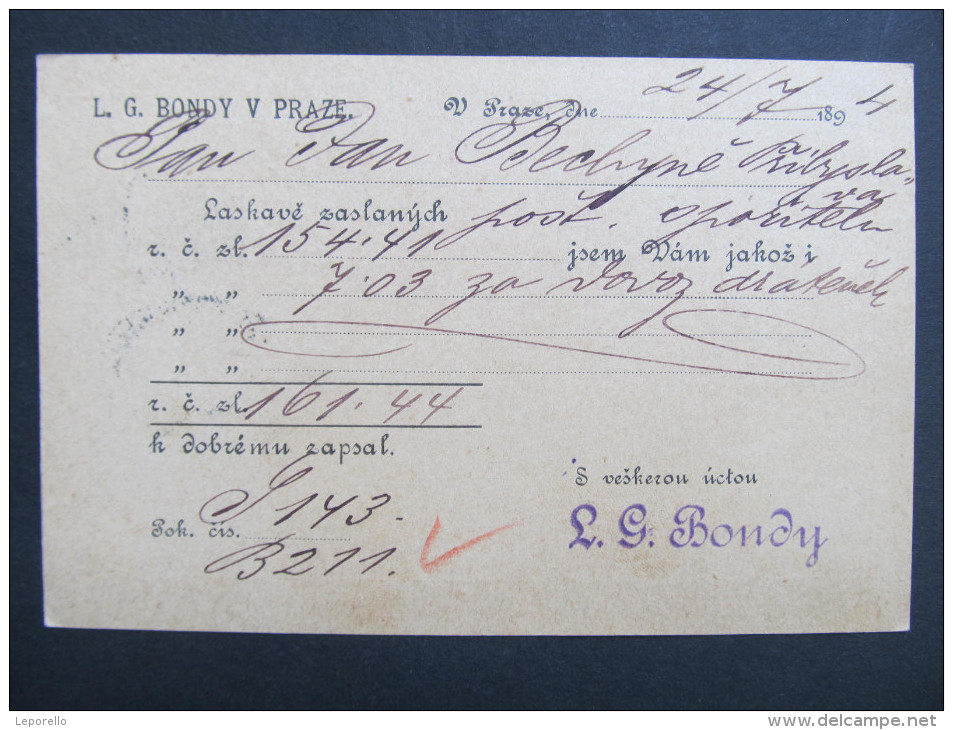 L. G. BONDY V PRAZE.
V Praze, dne 24/7 1894
Pan Jan Bechyně Přibysla-
va
Laskavě zaslaných pošt. spořitelu
r. č. zl. 154.41 jsem Vám jakož i
„ „ 7.03 za dovoz drateněk
„ „
„ „
r. č. zl. 161.44
k dobrému zapsal.
S veškerou úctou
L. G. Bondy
Pok. čís. J 143.
B211.
Leporello
www.delcampe.net